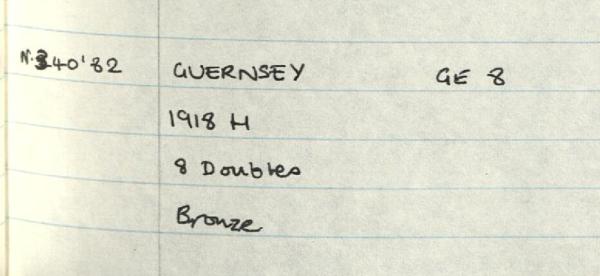 N.340'82 GUERNSEY GE 8
1918 H
8 Doubles
Bronze